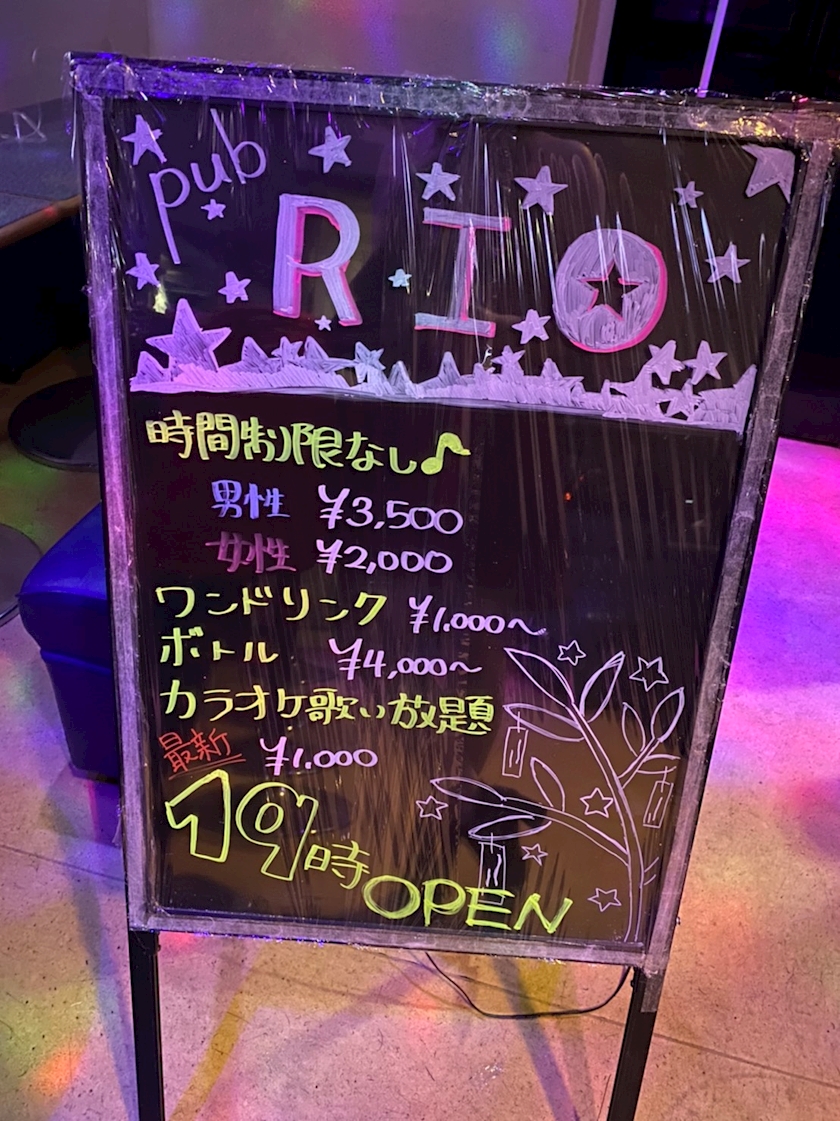 pub
RIO
時間制限なし♪
男性 ¥3,500
女性 ¥2,000
ワンドリンク ¥1,000~
ボトル ¥4,000~
カラオケ歌い放題
最新 ¥1,000
19時OPEN